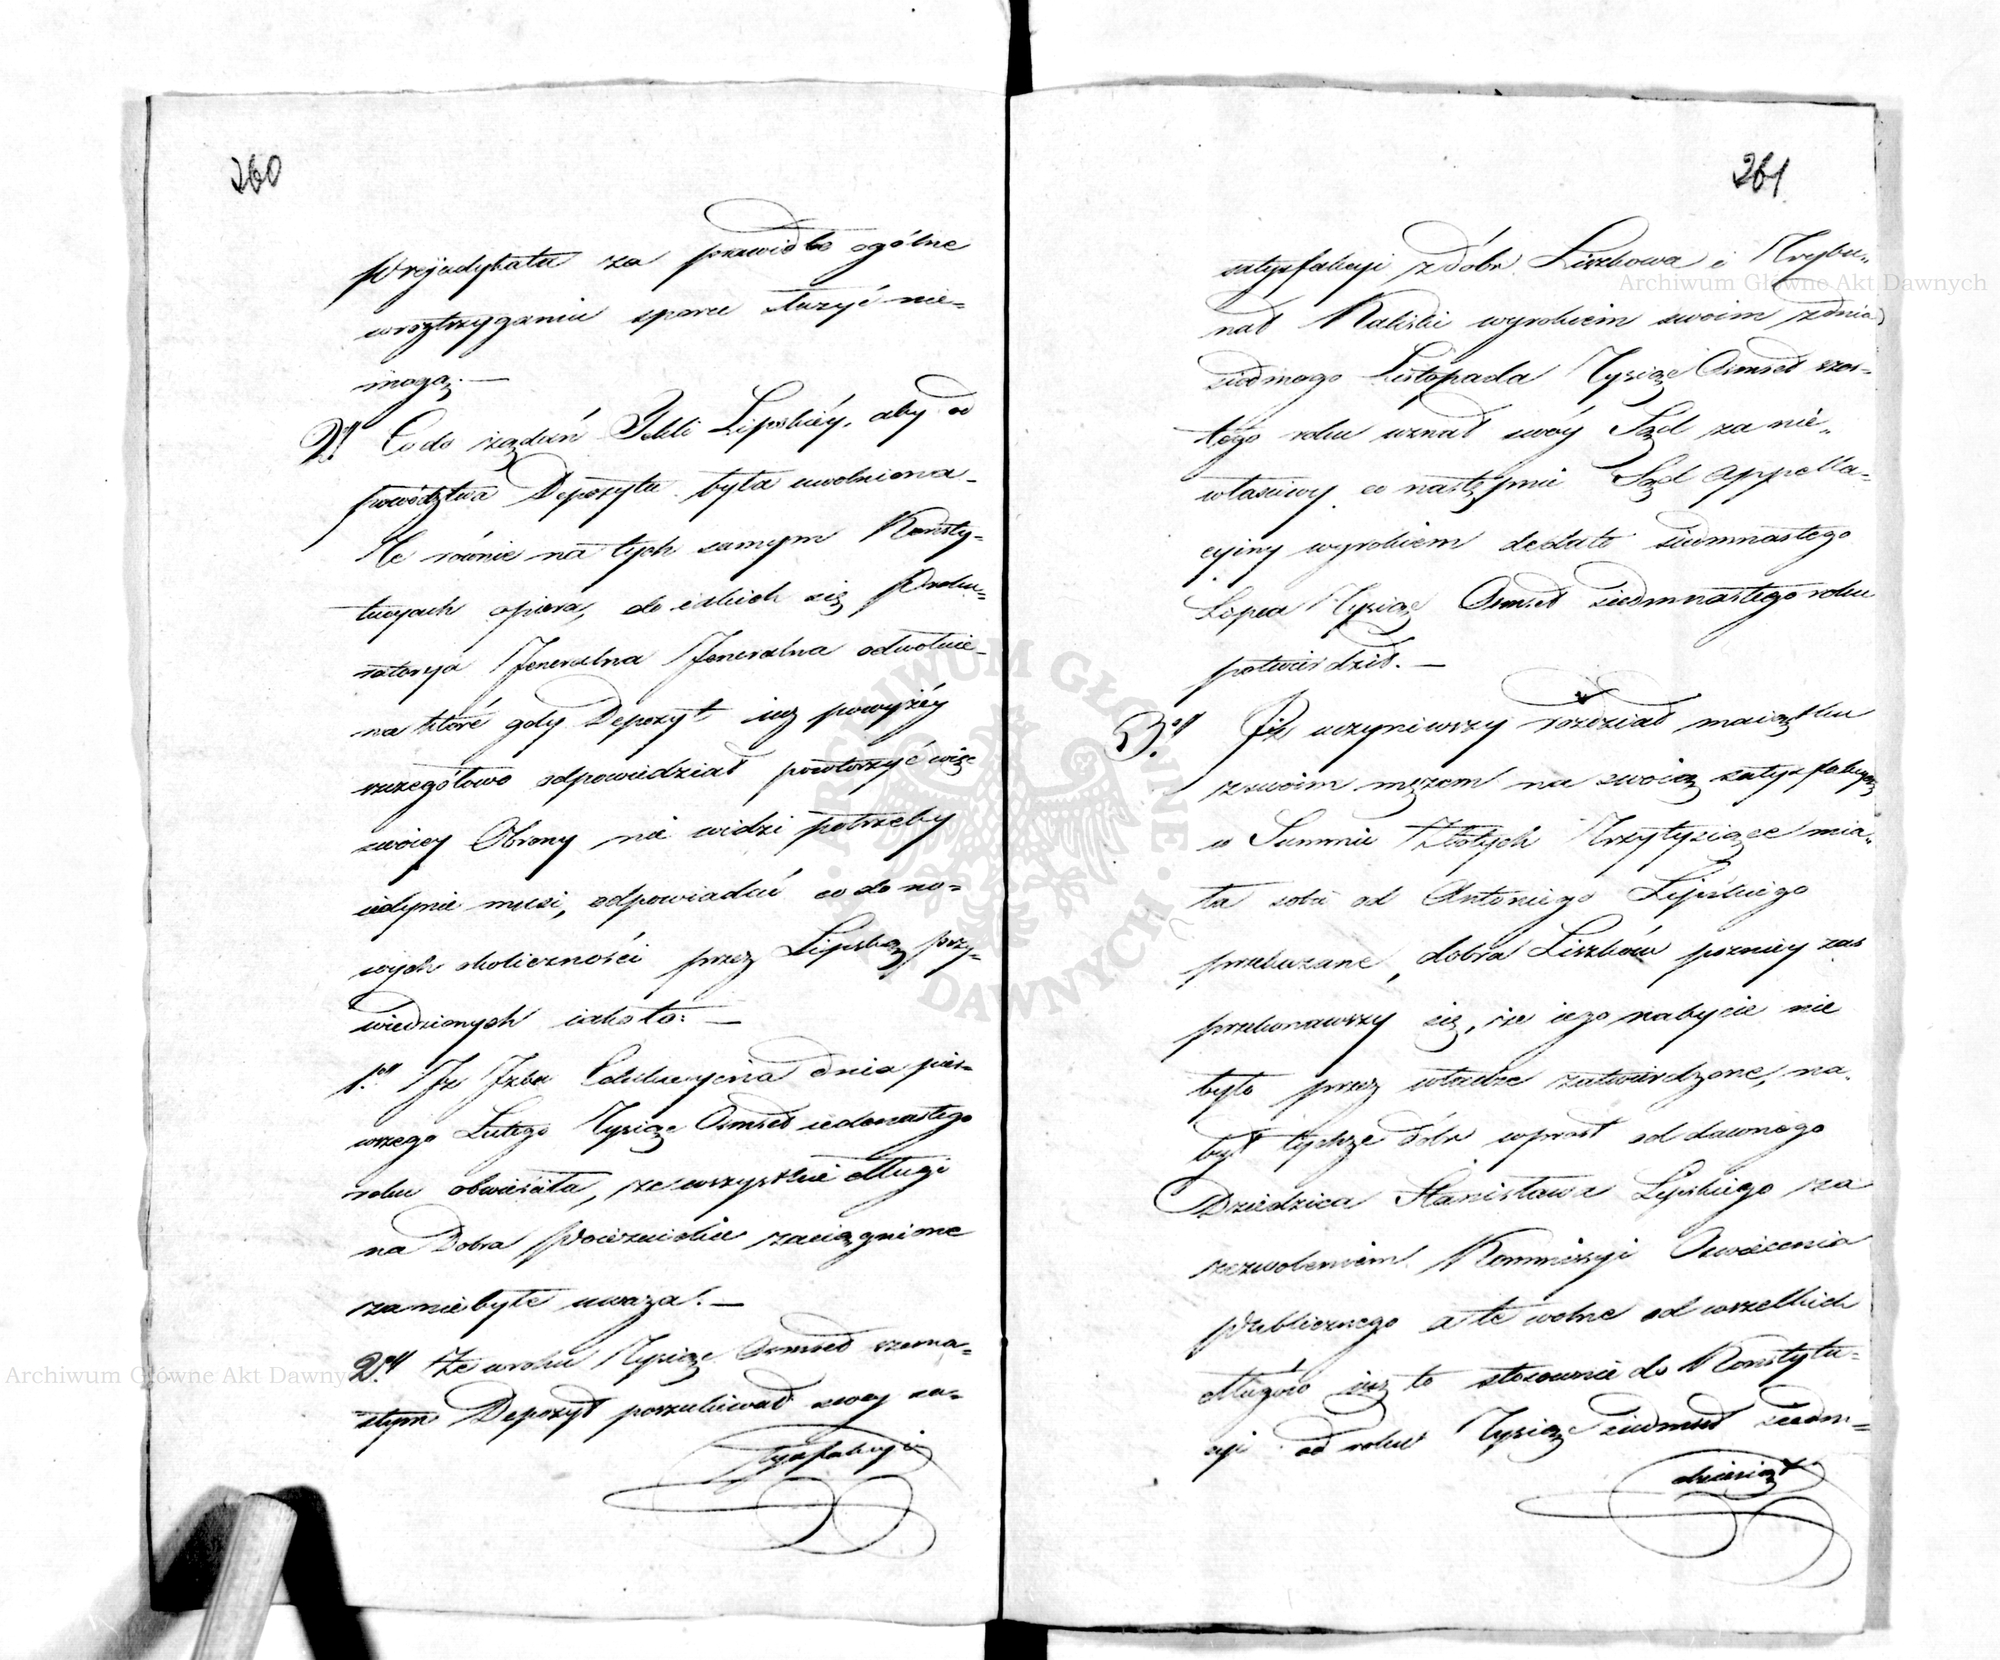 260
Prejudykatu za prawidło ogólne
w rozstrzyganiu sporu służyć nie=
mogą. —
2. Co do żądań Tekli Lipskiéy, aby od
powództwa Depozytu była uwolniona –
Że równie na tych samym Konsty=
tucyach opiera, do iakich się Proku=
ratorya Jeneralna Jeneralna odwołuie –
na któré gdy Depozyt iuż powyżéy
szczegółowo odpowiedział powtorzyć więc
swoiey Obrony nie widzi potrzeby
iedynie musi, odpowiadać co do no=
wych okoliczności przez Lipską przy=
wiedzionych iakoto: —
1.o Iż Izba Edukacyina dnia pier=
wszego Lutego Tysiąc Ośmset iedenastego
roku obwieściła, że wszystkie długi
na Dobra Poiezuickie zaciągnione
za niebyłe uważa. —
2.o Że w roku Tysiąc Ośmset szesna=
stym Depozyt poszukiwał swey sa=
tysfakcyi
261
satysfakcyi z dóbr Liszkowa i Trybu=
nał Kaliski wyrokiem swoim z dnia
siódmego Listopada Tysiąc Ośmset szes=
tego roku uznał swóy Sąd za nie=
właściwy, co następnie Sąd Appella=
cyiny wyrokiem dedato siedmnastego
Lipca Tysiąc Ośmset siedmnastego roku
potwierdził. —
3.o Iż uczyniwszy rozdział maiątku
ze swoim mężem na swoią satysfakcyą
w Summie Złotych Trzytysiące mia=
ła sobie od Antoniego Lipskiego
przekazane, dobra Liszków pozniey zas
przekonawszy się, że iego nabycie nie
było przez władze zatwierdzone, na=
był tychże dóbr wprost od dawnego
Dziedzica Stanisława Lipskiego za
zezwoleniem Kommissyi Oswiecenia
Publicznego a te wolne od wszelkich
długów iuż to stosownie do Konstytu=
cyi od roku Tysiąc siedmset siedm=
dziesiąt
Archiwum Główne Akt Dawnych
Archiwum Główne Akt Dawnych
ARCHIWUM GŁÓWNE AKT DAWNYCH